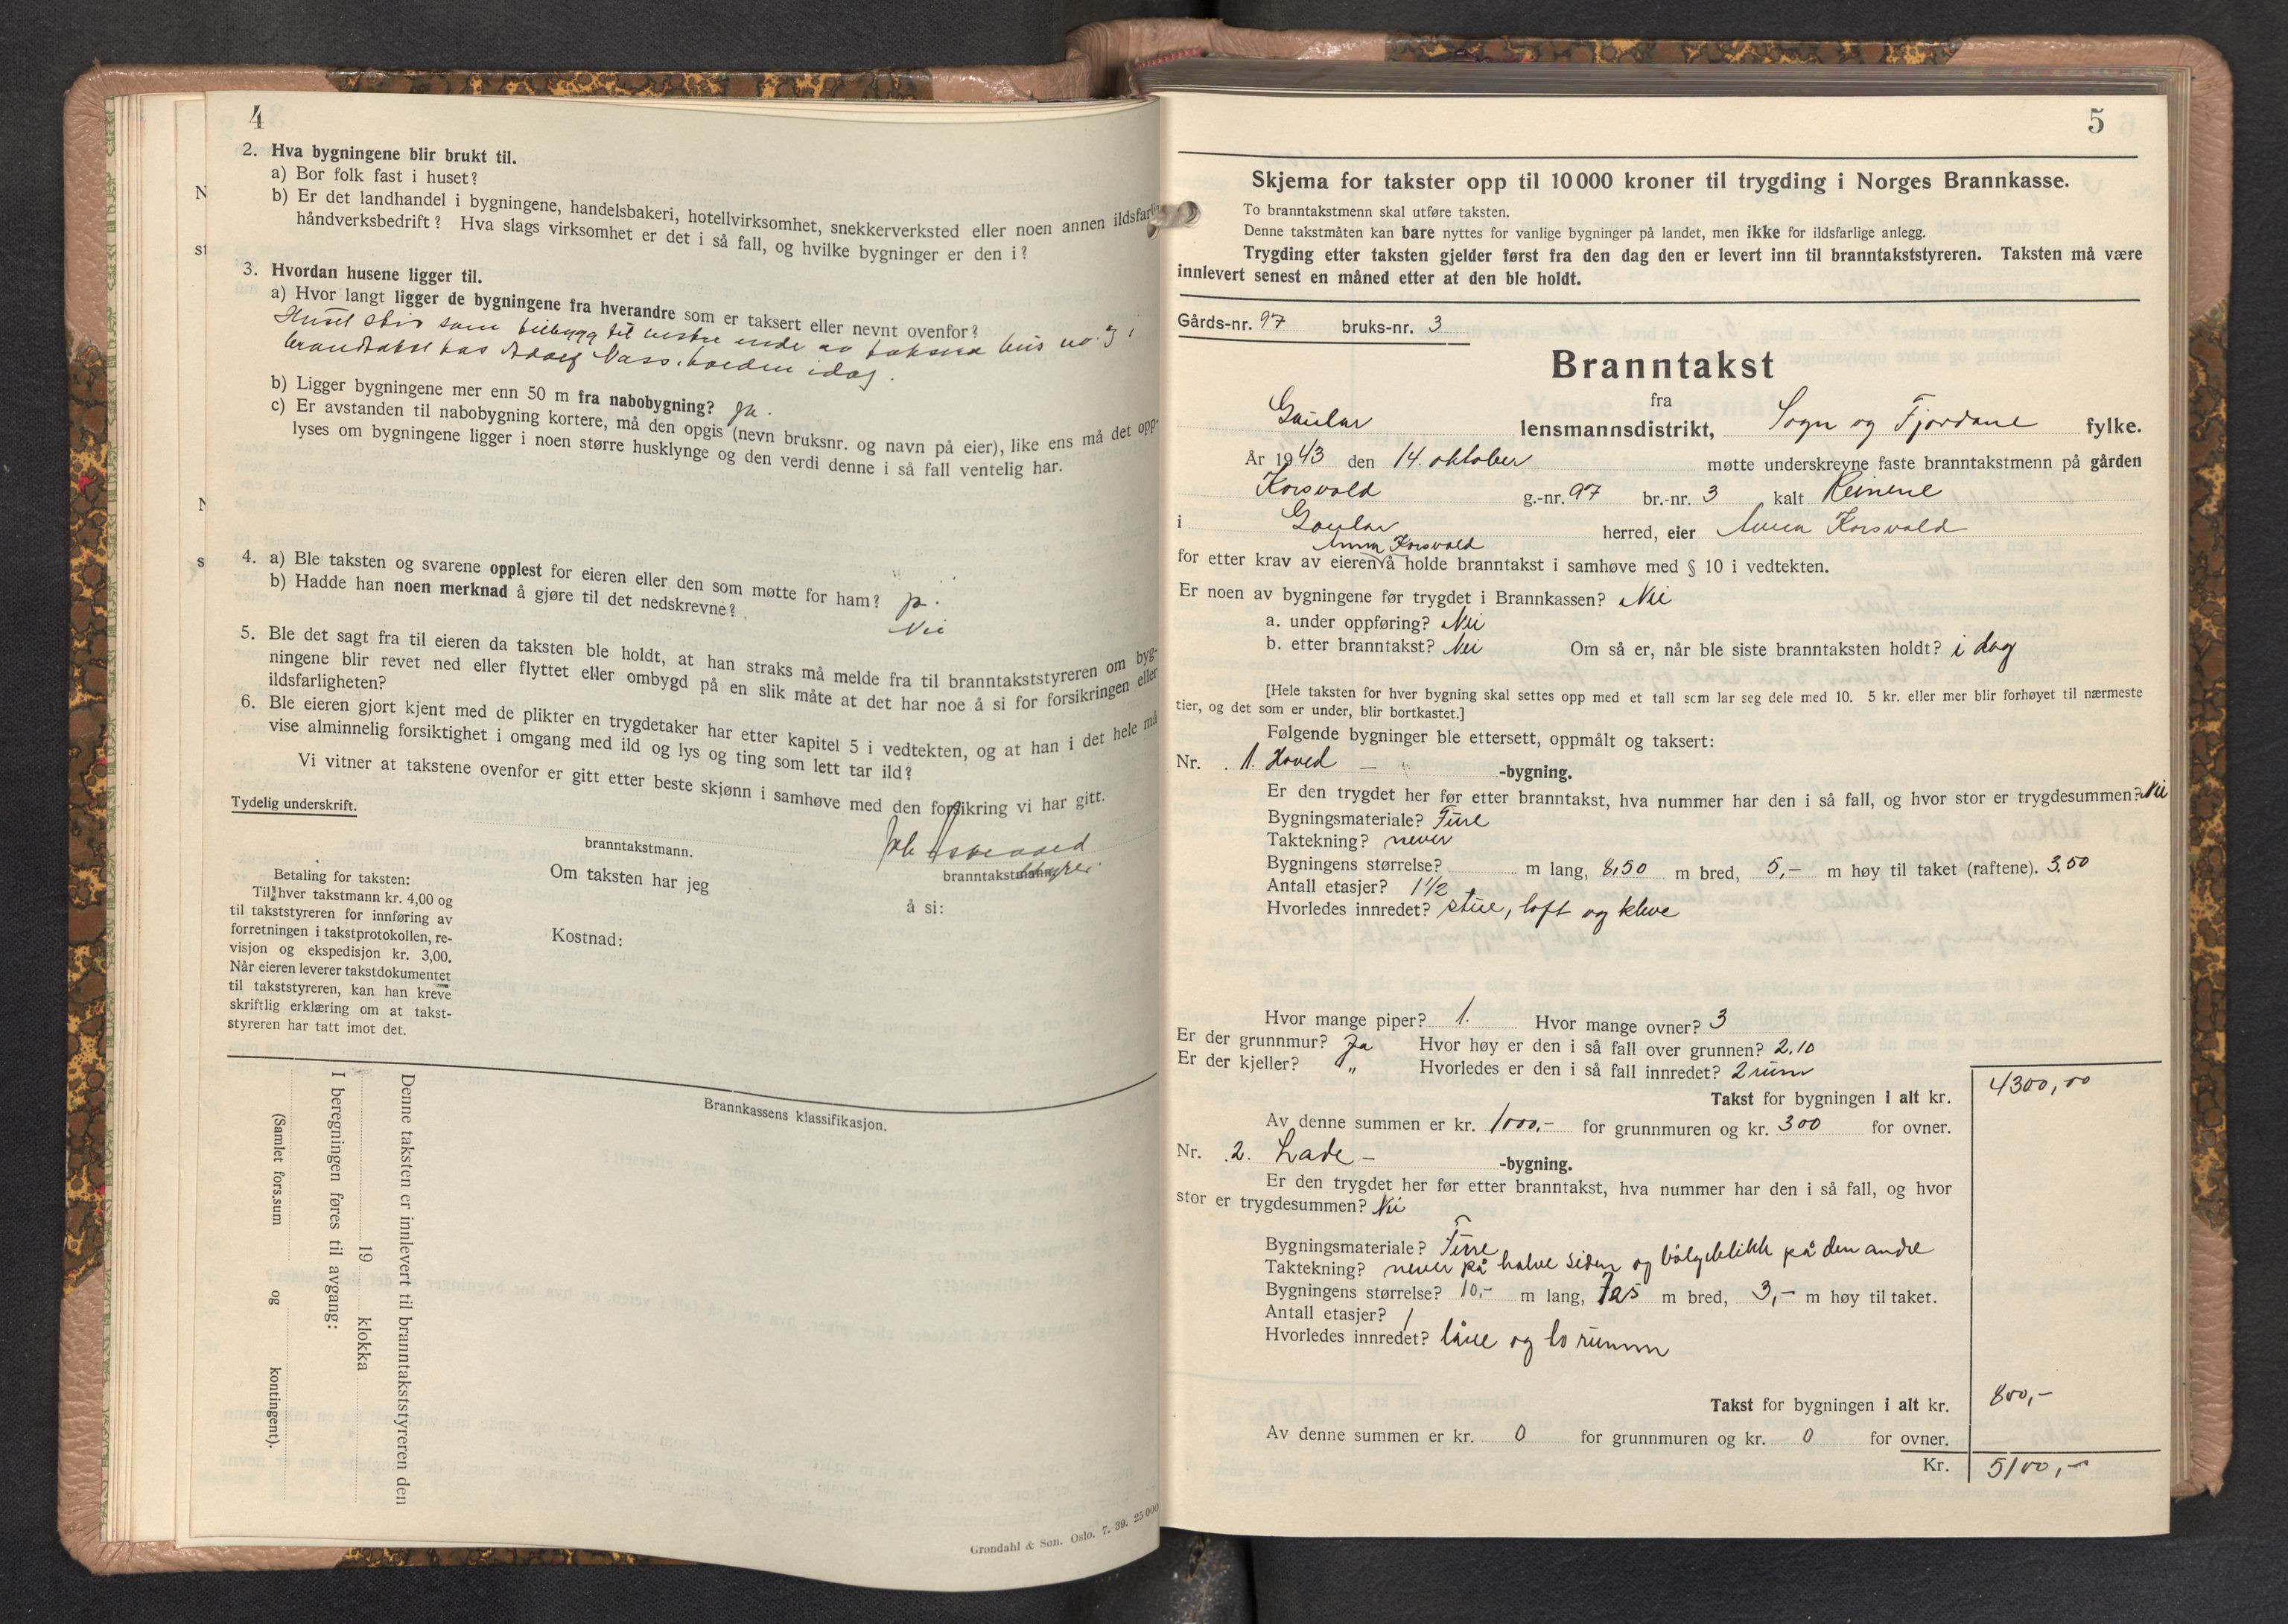 4
2. Hva bygningene blir brukt til.
a) Bor folk fast i huset?
b) Er det landhandel i bygningene, handelsbakeri, hotellvirksomhet, snekkerverksted eller noen annen ildsfarlig
håndverksbedrift? Hva slags virksomhet er det i så fall, og hvilke bygninger er den i?
3. Hvordan husene ligger til.
a) Hvor langt ligger de bygningene fra hverandre som er taksert eller nevnt ovenfor?
Huset står som tilbygg til vestre ende av hus no. 3 i
brandtakst hos Adolf Vass. holden idag.
b) Ligger bygningene mer enn 50 m fra nabobygning? Ja.
c) Er avstanden til nabobygning kortere, må den opgis (nevn bruksnr. og navn på eier), like ens må det opp-
lyses om bygningene ligger i noen større husklynge og den verdi denne i så fall ventelig har.
4. a) Ble taksten og svarene opplest for eieren eller den som møtte for ham? ja.
b) Hadde han noen merknad å gjøre til det nedskrevne? Nei
5. Ble det sagt fra til eieren da taksten ble holdt, at han straks må melde fra til branntakststyreren om byg-
ningene blir revet ned eller flyttet eller ombygd på en slik måte at det har noe å si for forsikringen eller
ildsfarligheten?
6. Ble eieren gjort kjent med de plikter en trygdetaker har etter kapitel 5 i vedtekten, og at han i det hele må
vise alminnelig forsiktighet i omgang med ild og lys og ting som lett tar ild?
Vi vitner at takstene ovenfor er gitt etter beste skjønn i samhøve med den forsikring vi har gitt.
Tydelig underskrift.
branntakstmann.
branntakstmann.
Om taksten har jeg
å si:
Kostnad:
Betaling for taksten:
Til hver takstmann kr. 4,00 og
til takststyreren for innføring av
forretningen i takstprotokollen, re-
visjon og ekspedisjon kr. 3,00.
Når eieren leverer takstdokumentet
til takststyreren, kan han kreve
skriftlig erklæring om at takst-
styreren har tatt imot det.
Brannkassens klassifikasjon.
Denne taksten er innlevert til branntakststyreren den
19 klokka
I beregningen føres til avgang:
(Samlet fors.sum og kontingent).
Grøndahl & Søn. Oslo. 7. 39. 25 000
5
Skjema for takster opp til 10000 kroner til trygding i Norges Brannkasse.
To branntakstmenn skal utføre taksten.
Denne takstmåten kan bare nyttes for vanlige bygninger på landet, men ikke for ildsfarlige anlegg.
Trygding etter taksten gjelder først fra den dag den er levert inn til branntakststyreren. Taksten må være
innlevert senest en måned etter at den ble holdt.
Gårds-nr. 97 bruks-nr. 3
Branntakst
fra
Gaular lensmannsdistrikt, Sogn og Fjordane fylke.
År 1943 den 14. oktober møtte underskrevne faste branntakstmenn på gården
Korsvold g.-nr. 97 br.-nr. 3 kalt Reinene
i Gaular herred, eier Anna Korsvold
Anna Korsvold
for etter krav av eieren å holde branntakst i samhøve med § 10 i vedtekten.
Er noen av bygningene før trygdet i Brannkassen? Nei
a. under oppføring? Nei
b. etter branntakst? Nei Om så er, når ble siste branntaksten holdt? i dag
[Hele taksten for hver bygning skal settes opp med et tall som lar seg dele med 10. 5 kr. eller mer blir forhøyet til nærmeste
tier, og det som er under, blir bortkastet.]
Følgende bygninger ble ettersett, oppmålt og taksert:
Nr. 1. Hoved - -bygning.
Er den trygdet her før etter branntakst, hva nummer har den i så fall, og hvor stor er trygdesummen? Nei
Bygningsmateriale? Fure
Taktekning? never
Bygningens størrelse? m lang, 8,50 m bred, 5,- m høy til taket (raftene). 3,50
Antall etasjer? 1½
Hvorledes innredet? stue, loft og kleve
Hvor mange piper? 1. Hvor mange ovner? 3
Er der grunnmur? Ja Hvor høy er den i så fall over grunnen? 2.10
Er der kjeller? „ Hvorledes er den i så fall innredet? 2 rum
Takst for bygningen i alt kr. 4300,00
Av denne summen er kr. 1000,- for grunnmuren og kr. 300 for ovner.
Nr. 2. Lade- -bygning.
Er den trygdet her før etter branntakst, hva nummer har den i så fall, og hvor
stor er trygdesummen? Nei
Bygningsmateriale? Fure
Taktekning? never på halve siden og bølgeblikk på den andre
Bygningens størrelse? 10,- m lang, 7,25 m bred, 3,- m høy til taket.
Antall etasjer? 1
Hvorledes innredet? låve og to rumm
Takst for bygningen i alt kr. 800,-
Av denne summen er kr. 0 for grunnmuren og kr. 0 for ovner.
Kr. 5100,-